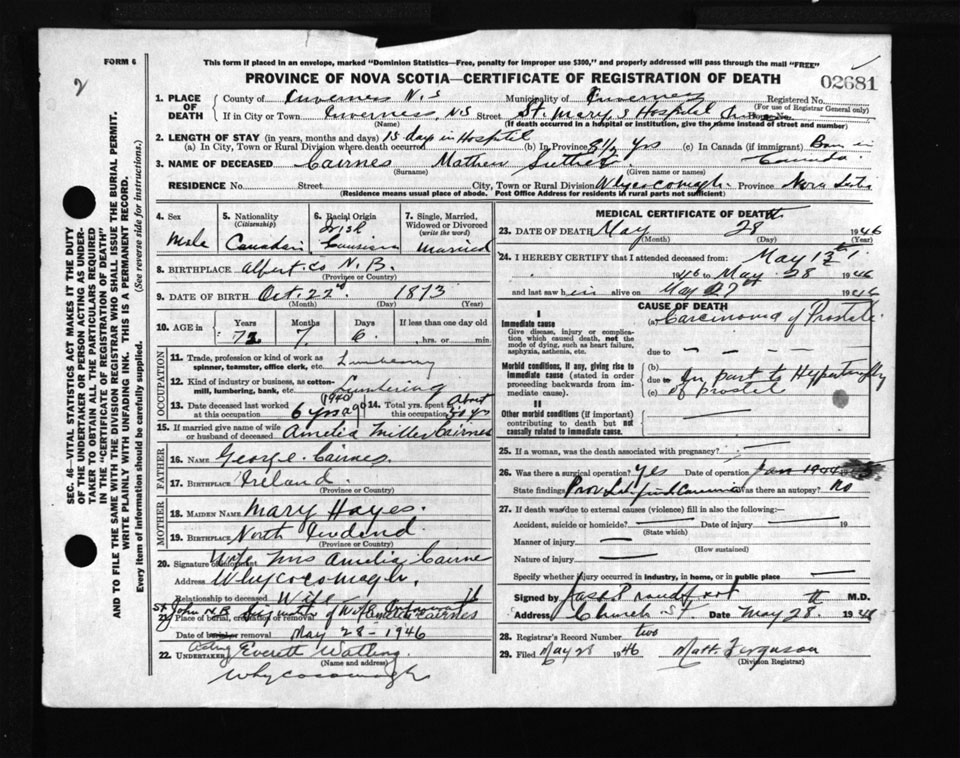 2
FORM 6
This form if placed in an envelope, marked "Dominion Statistics—Free, penalty for improper use $300," and properly addressed will pass through the mail "FREE"
PROVINCE OF NOVA SCOTIA—CERTIFICATE OF REGISTRATION OF DEATH
02681
SEC. 46—VITAL STATISTICS ACT MAKES IT THE DUTY
OF THE UNDERTAKER OR PERSON ACTING AS UNDER-
TAKER TO OBTAIN ALL THE PARTICULARS REQUIRED
IN THE "CERTIFICATE OF REGISTRATION OF DEATH"
AND TO FILE THE SAME WITH THE DIVISION REGISTRAR WHO SHALL ISSUE THE BURIAL PERMIT.
WRITE PLAINLY WITH UNFADING INK. THIS IS A PERMANENT RECORD.
Every item of information should be carefully supplied. (See reverse side for instructions.)
1. PLACE OF DEATH
County of Inverness N.S Municipality of Inverness Registered No.
(For use of Registrar General only)
If in City or Town Inverness, NS Street St. Mary's Hospital
(Name) (If death occurred in a hospital or institution, give the name instead of street and number)
2. LENGTH OF STAY (in years, months and days) 15 day in Hospital
(a) In City, Town or Rural Division where death occurred (b) In Province yrs (c) In Canada (if immigrant) Born in Canada
3. NAME OF DECEASED Cairnes Mathew
(Surname) (Given name or names)
RESIDENCE No. Street City, Town or Rural Division Whycocomagh Province Nova Scotia
(Residence means usual place of abode. Post Office Address for residents in rural parts not sufficient)
4. Sex Male
5. Nationality (Citizenship) Canadian
6. Racial Origin Irish
7. Single, Married, Widowed or Divorced (write the word) Married
8. BIRTHPLACE Albert Co N.B.
(Province or Country)
9. DATE OF BIRTH Oct. 22nd 1873
(Month) (Day) (Year)
10. AGE in Years 72 Months 7 Days 6 If less than one day old hrs. or min.
OCCUPATION
11. Trade, profession or kind of work as spinner, teamster, office clerk, etc.
12. Kind of industry or business, as cotton-mill, lumbering, bank, etc. Lumbering
13. Date deceased last worked at this occupation 1940 6 yrs ago
14. Total yrs. spent in this occupation About 50 yrs
15. If married give name of wife or husband of deceased Amelia Miller Cairnes
FATHER
16. NAME George Cairnes.
17. BIRTHPLACE Ireland.
(Province or Country)
MOTHER
18. MAIDEN NAME Mary Hayes.
19. BIRTHPLACE North
(Province or Country)
20. Signature of informant Mrs Amelia Cairnes
Address Whycocomagh,
Relationship to deceased Wife
21. Place of burial, cremation or removal St. John N.B
Date of burial or removal May 28-1946
22. UNDERTAKER Acting Everett Watling.
(Name and address)
Whycocomagh
MEDICAL CERTIFICATE OF DEATH
23. DATE OF DEATH May 28 1946
(Month) (Day) (Year)
24. I HEREBY CERTIFY that I attended deceased from: May 13th
1946 to May 28 1946
and last saw him alive on May 27th 1946
CAUSE OF DEATH
I
Immediate cause
Give disease, injury or complication which caused death, not the mode of dying, such as heart failure, asphyxia, asthenia, etc.
(a) Carcinoma of Prostate
due to
Morbid conditions, if any, giving rise to immediate cause (stated in order proceeding backwards from immediate cause).
(b)
due to In part to Hypertrophy
(c) of prostate
II
Other morbid conditions (if important) contributing to death but not causally related to immediate cause.
25. If a woman, was the death associated with pregnancy?
26. Was there a surgical operation? Yes Date of operation Jan
State findings Was there an autopsy? No
27. If death was due to external causes (violence) fill in also the following:—
Accident, suicide or homicide? Date of injury 19
(State which)
Manner of injury
(How sustained)
Nature of injury
Specify whether injury occurred in industry, in home, or in public place
Signed by Jas Proudfoot M.D.
Address Church St. Date May 28th 1946
28. Registrar's Record Number two
29. Filed May 28 1946 Matt. Ferguson
(Division Registrar)